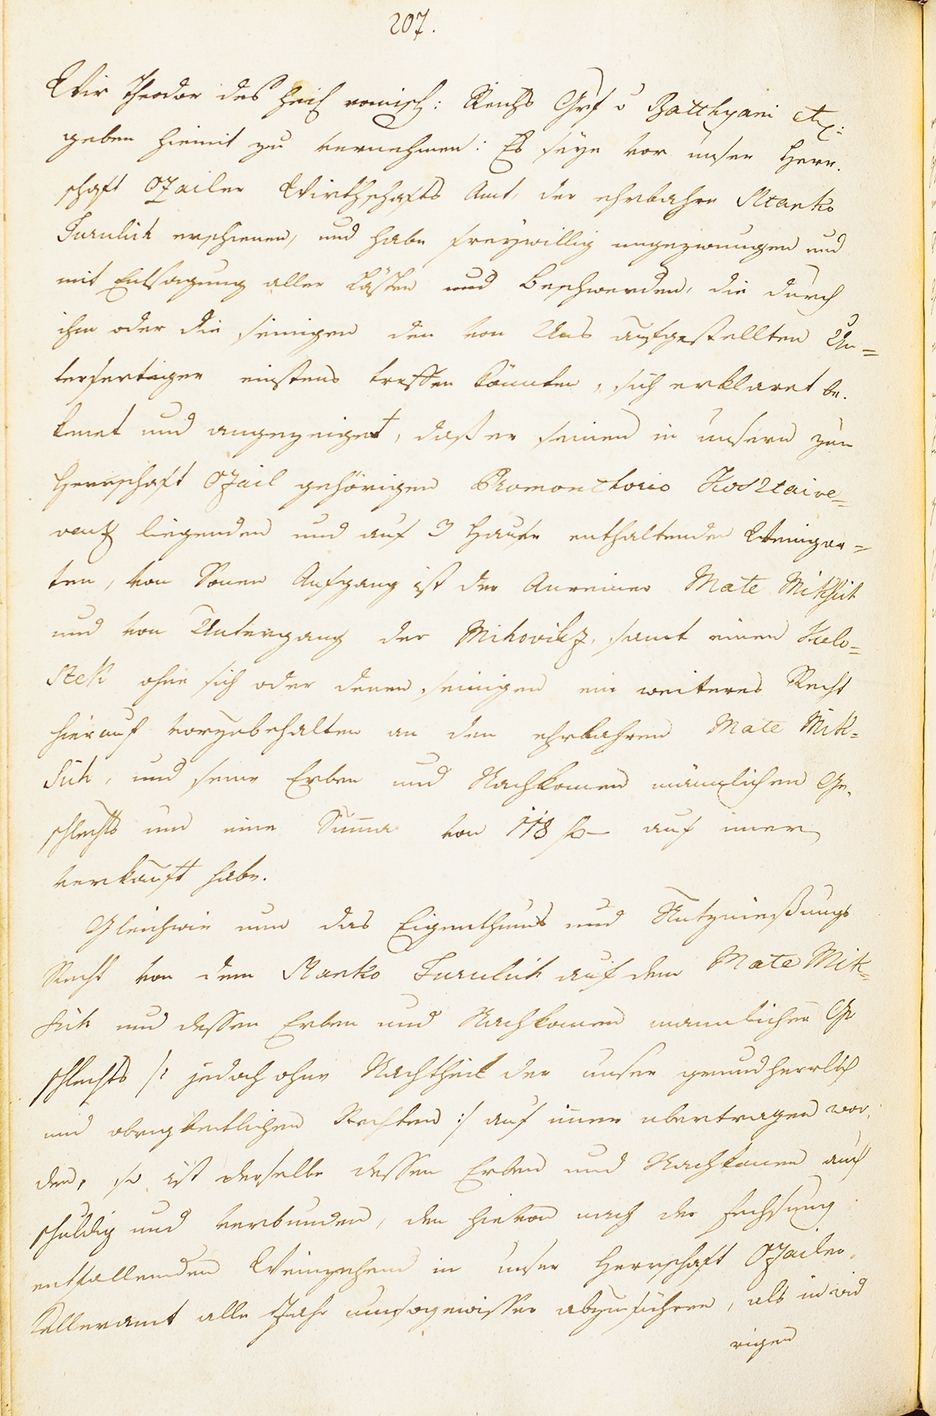 207.
Wir Theodor des heil römisch: Reichs Grf v Batthyani etc:
geben hiemit zu vernehmen: Es seÿe vor unser Herr-
schaft Ozailer Wirthschafts Amt, der ehrbahre Stanko
Turulich erschienen, und habe freÿwillig ungezwungen und
mit Entsagung aller Lästen und Beschwerden, die durch
ihn oder die seinigen den von Uns aufgestellten Un=
terfertigen einstens treffen könnten, sich erklaret be-
kenet und angezeiget, daß er seinen in unsern zur
Herrschaft Ozail gehörigen Promonthorio Kosztaive=
vacz liegenden und auf 3 Hauer enthaltenden Weingar=
ten, von Sonen Aufgang ist der Anreiner Mate Mikssich
und von Untergang der Mihovilz, samt einen Kelo=
stek ohne sich oder denen seinigen ein weiteres Recht
hierauf vorzubehalten an den ehrbahren Mate Mik=
sich, und seine Erben und Nachkomen mänlichen Ge-
schlechts um eine Suma von 118 f auf imer
verkauft habe.
Gleichwie nun das Eigenthums und Nutznießungs
Recht von dem Stanko Turulich auf den Mate Mik=
sich und dessen Erben und Nachkomen mannlichen Ge
schlechts /: jedoch ohne Nachtheil der unser grundherrlich
und obrigkeitlichen Rechten :/ auf imer ubertragen wor-
den, so ist derselbe dessen Erben und Nachkomen auch
schuldig und verbunden, den hievon nach der Fechsung
entfallenden Weinzehend in unser Herrschaft Ozailer
Kelleramt alle Jahr umsogewisser abzuführen, als in wid
rigen